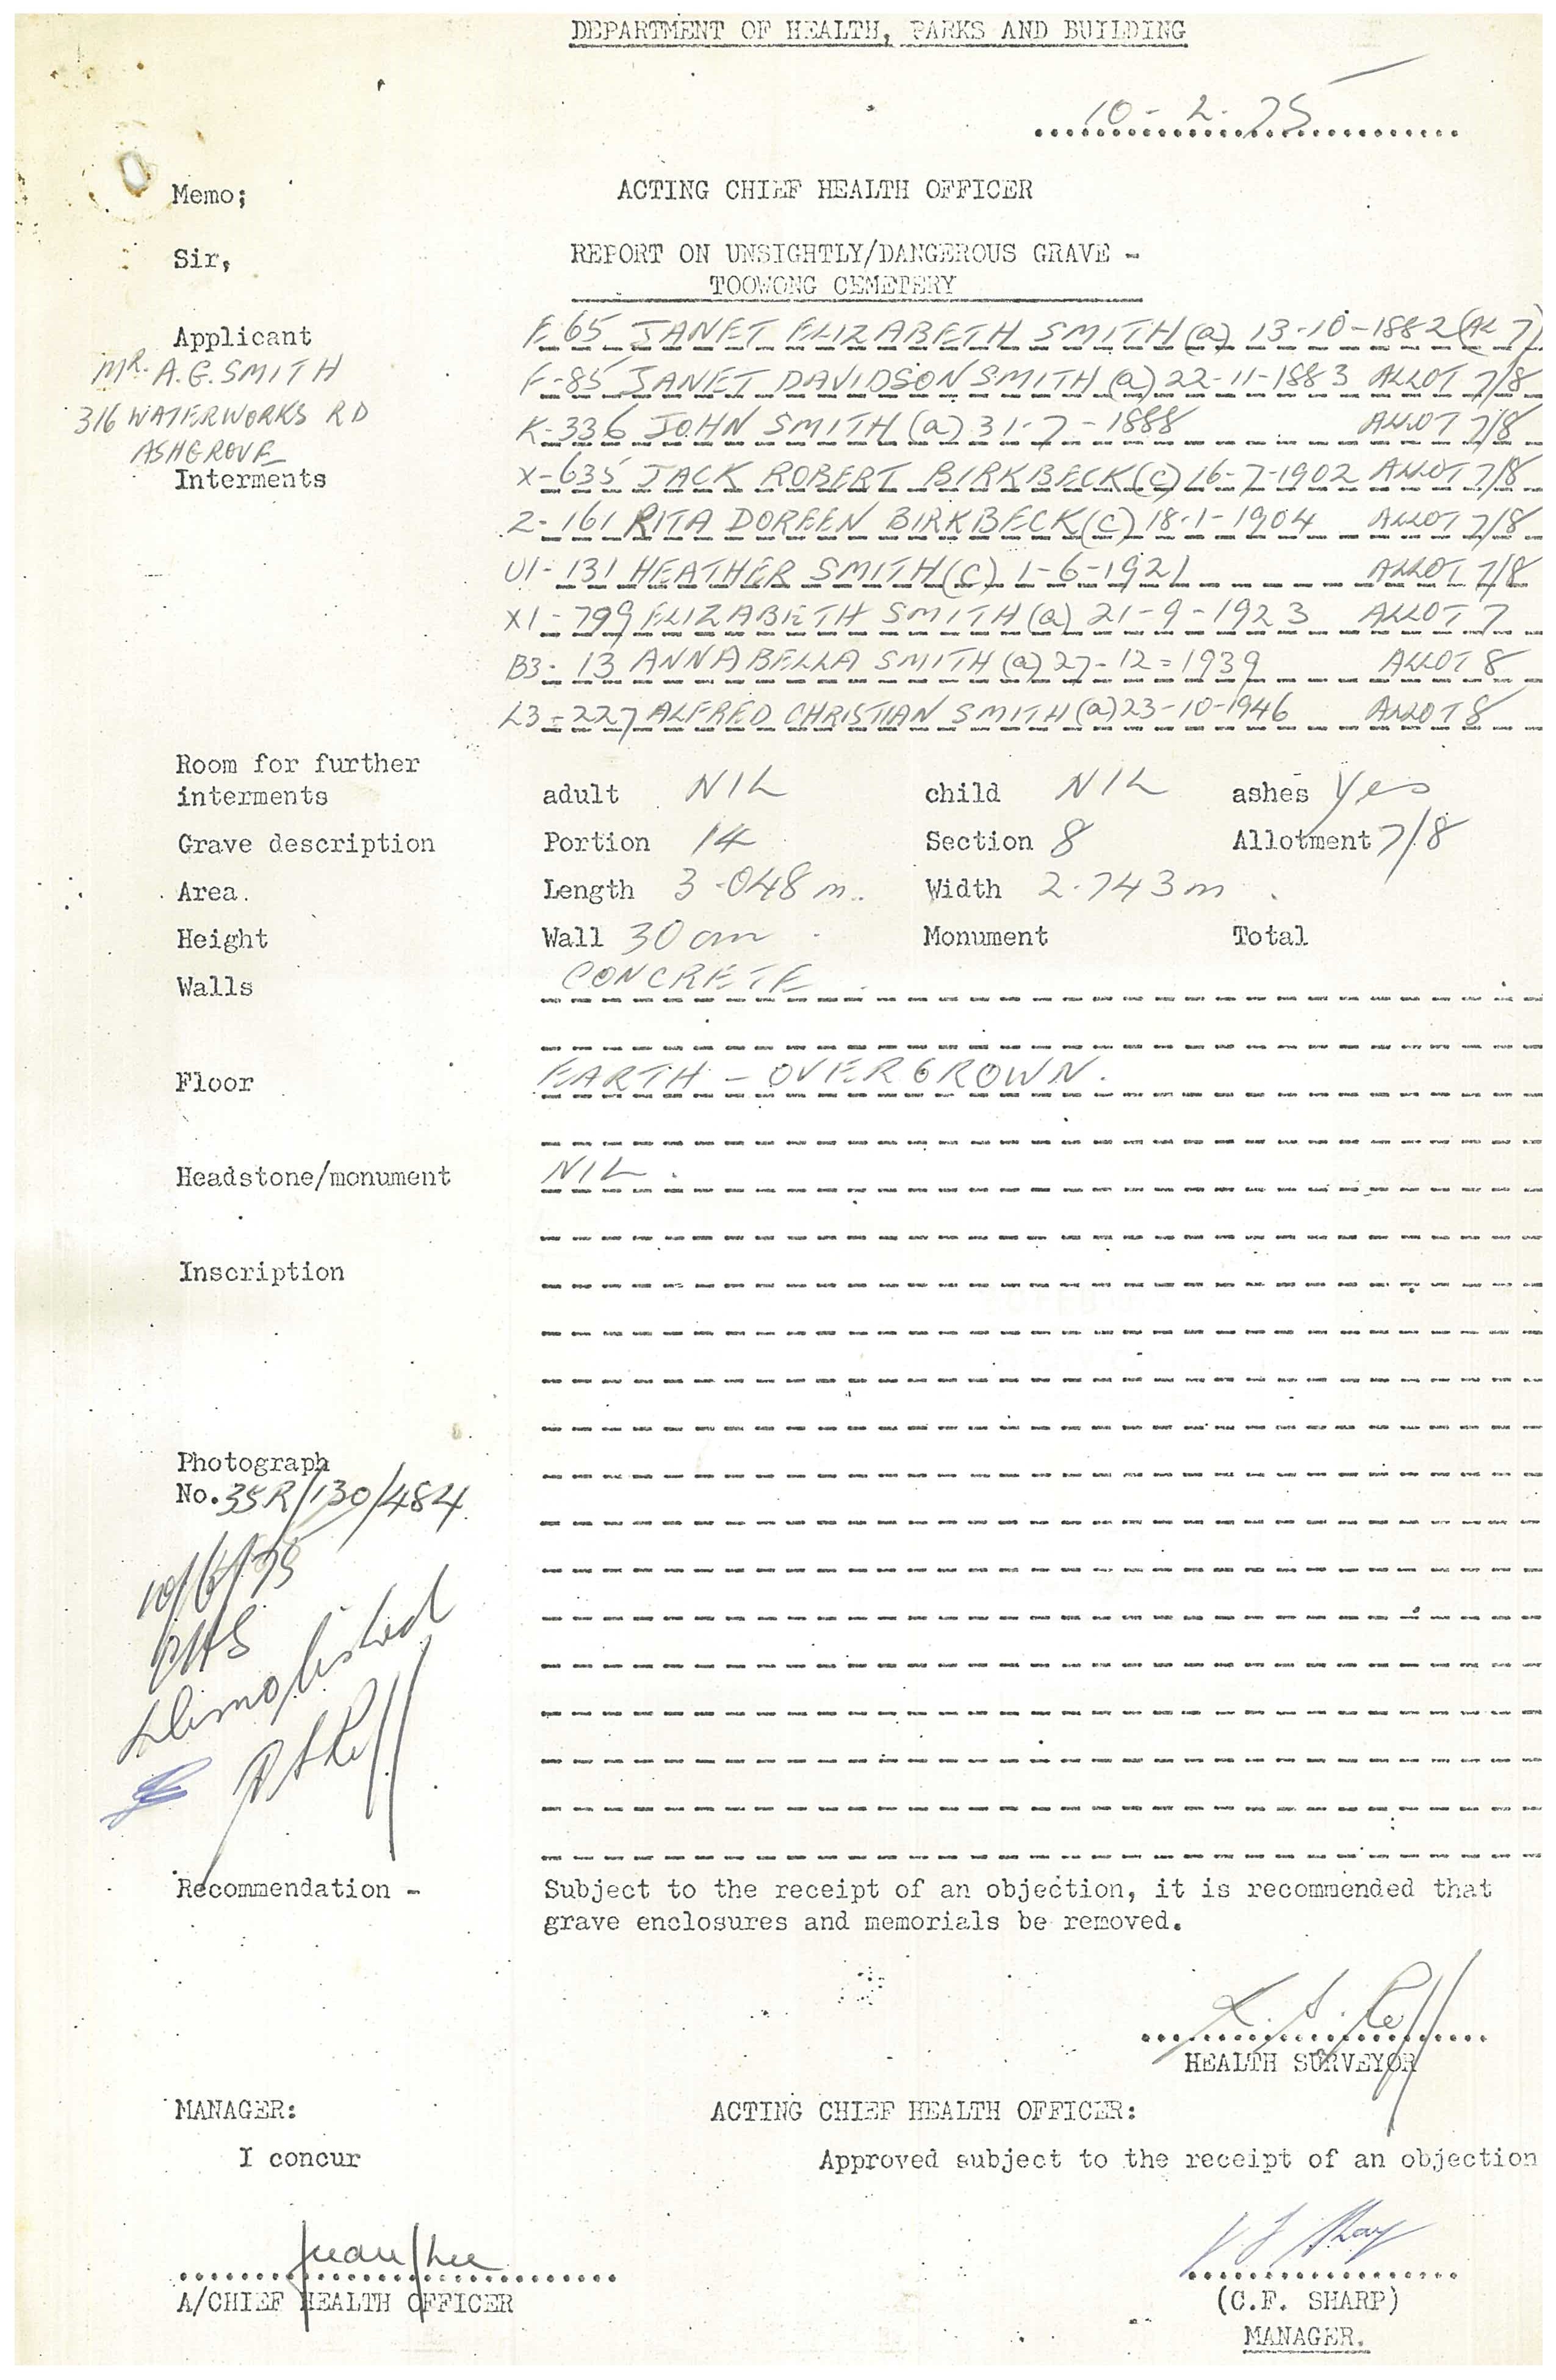 DEPARTMENT OF HEALTH, PARKS AND BUILDING
10-2-75
Memo; ACTING CHIEF HEALTH OFFICER
Sir, REPORT ON UNSIGHTLY/DANGEROUS GRAVE -
TOOWONG CEMETERY
Applicant
MR. A.G. SMITH
316 WATERWORKS RD
ASHGROVE
Interments
F 65 JANET ELIZABETH SMITH (a) 13-10-1882 (AL 7)
F-85 JANET DAVIDSON SMITH (a) 22-11-1883 ALLOT 7/8
K-336 JOHN SMITH (a) 31-7-1888 ALLOT 7/8
X-635 JACK ROBERT BIRKBECK (C) 16-7-1902 ALLOT 7/8
Z-161 RITA DOREEN BIRKBECK (C) 18-1-1904 ALLOT 7/8
U1-131 HEATHER SMITH (C) 1-6-1921 ALLOT 7/8
X1-799 ELIZABETH SMITH (a) 21-9-1923 ALLOT 7
B3-13 ANNABELLA SMITH (a) 27-12-1939 ALLOT 8
L3-227 ALFRED CHRISTIAN SMITH (a) 23-10-1946 ALLOT 8
Room for further
interments adult NIL child NIL ashes Yes
Grave description Portion 14 Section 8 Allotment 7/8
Area. Length 3.048 m. Width 2.743 m
Height Wall 30 cm Monument Total
Walls CONCRETE
Floor EARTH - OVERGROWN.
Headstone/monument NIL.
Inscription
Photograph
No. 35R/130/484
10/6/75
Demolished
Recommendation - Subject to the receipt of an objection, it is recommended that
grave enclosures and memorials be removed.
HEALTH SURVEYOR
MANAGER: ACTING CHIEF HEALTH OFFICER:
I concur Approved subject to the receipt of an objection
A/CHIEF HEALTH OFFICER (C.F. SHARP)
MANAGER.